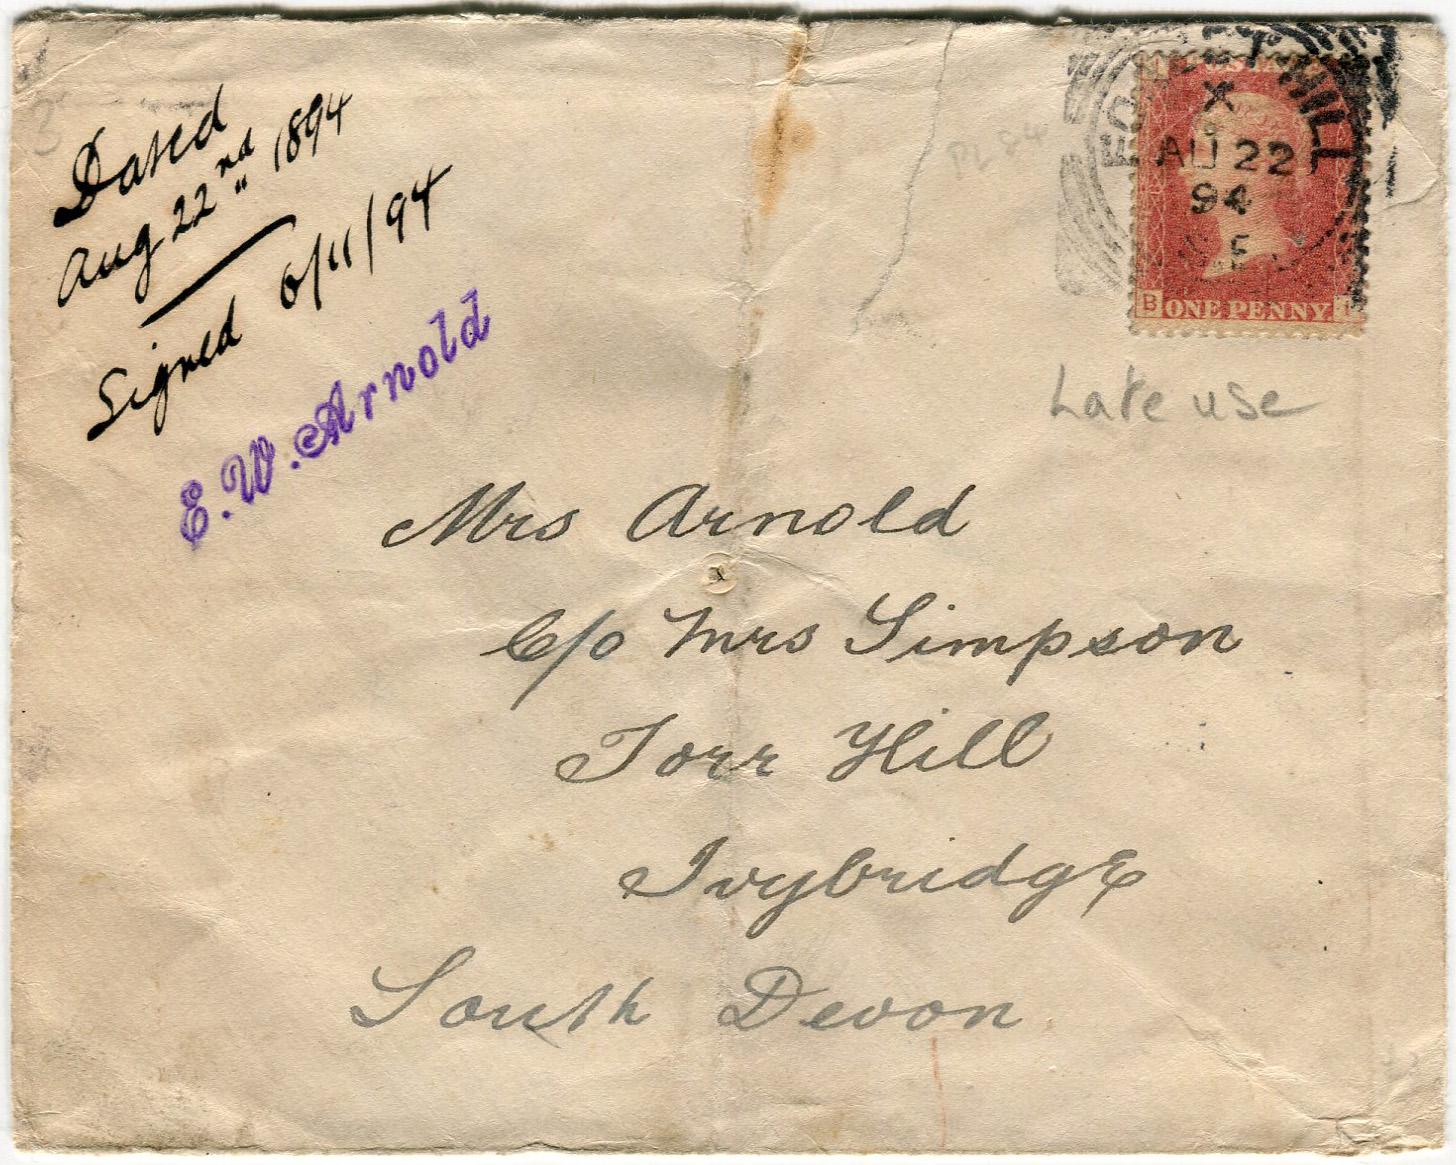 Dated
Aug 22nd 1894
Signed 6/11/94
E.W. Arnold
PL 84
HILL
X
AU 22
94
S.E
B ONE PENNY
Late use
Mrs Arnold
C/o Mrs Simpson
Torr Hill
Ivybridge
South Devon